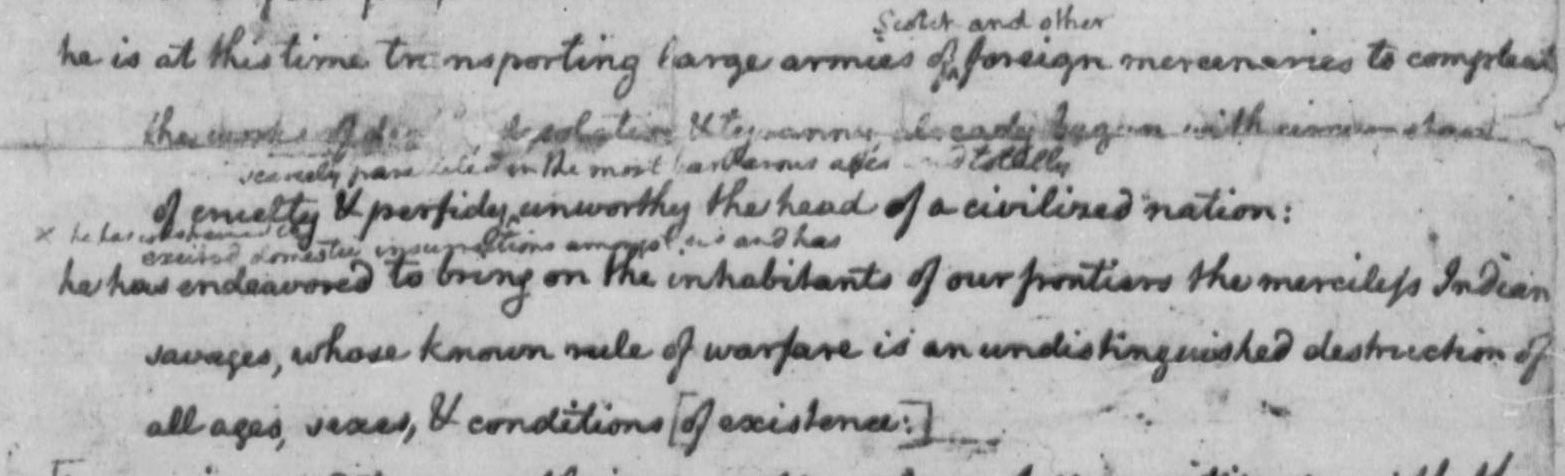 Scotch and other
he is at this time transporting large armies of foreign mercenaries to compleat
the works of desolation & tyranny already begun with circumstances
scarcely paralleled in the most barbarous ages and totally
of cruelty & perfidy unworthy the head of a civilized nation:
× he has
excited domestic insurrections amongst us and has
he has endeavored to bring on the inhabitants of our frontiers the merciless Indian
savages, whose known rule of warfare is an undistinguished destruction of
all ages, sexes, & conditions [of existence:]